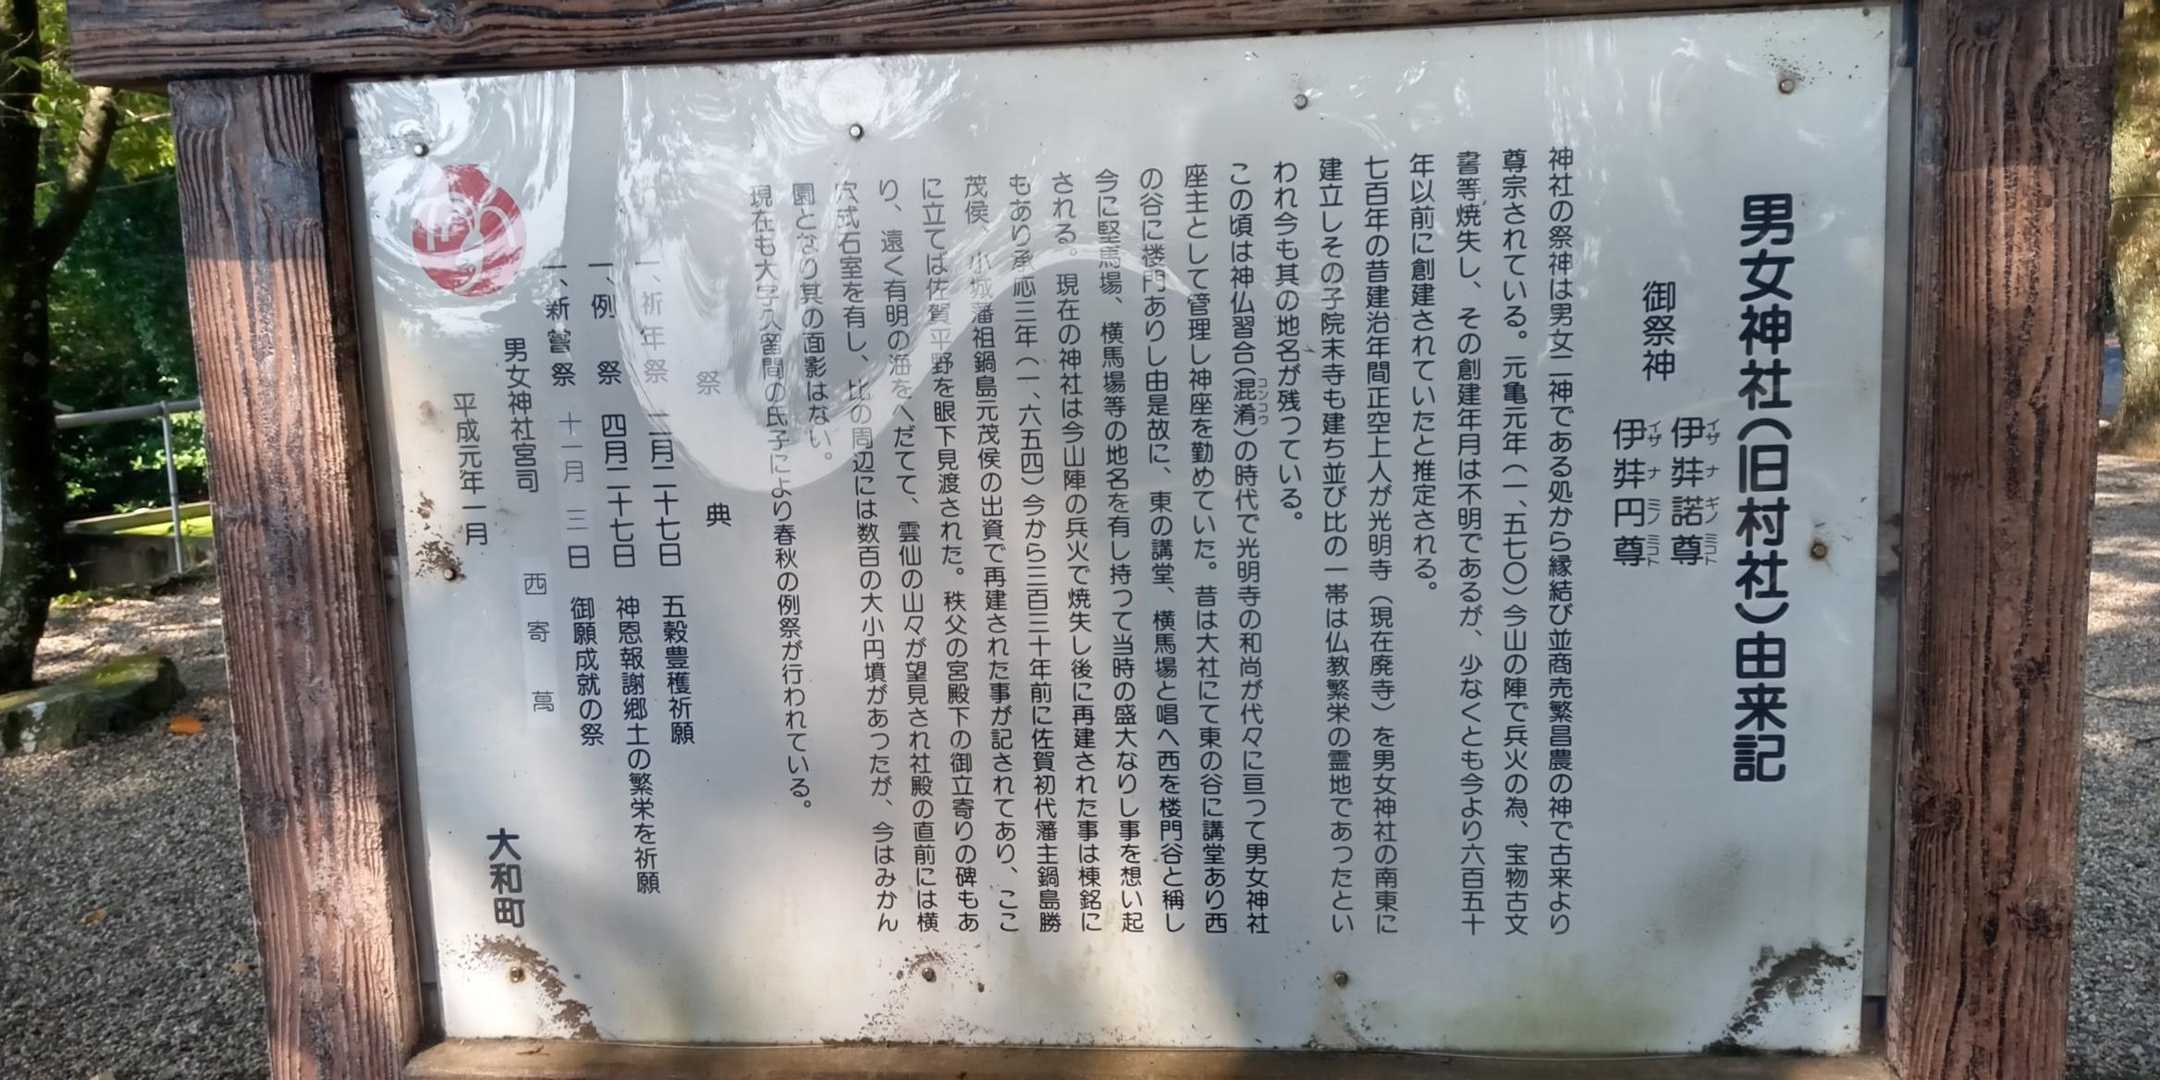 男女神社(旧村社)由来記
御祭神
伊弉諾尊
イザナギノミコト
伊弉円尊
イザナミノミコト
神社の祭神は男女二神である処から縁結び並商売繁昌農の神で古来より
尊宗されている。元亀元年(一、五七〇)今山の陣で兵火の為、宝物古文
書等焼失し、その創建年月は不明であるが、少なくとも今より六百五十
年以前に創建されていたと推定される。
七百年の昔建治年間正空上人が光明寺(現在廃寺)を男女神社の南東に
建立しその子院末寺も建ち並び比の一帯は仏教繁栄の霊地であったとい
われ今も其の地名が残っている。
この頃は神仏習合(混淆)の時代で光明寺の和尚が代々に亘って男女神社
コンコウ
座主として管理し神座を勤めていた。昔は大社にて東の谷に講堂あり西
の谷に楼門ありし由是故に、東の講堂、横馬場と唱へ西を楼門谷と稱し
今に堅馬場、横馬場等の地名を有し持つて当時の盛大なりし事を想い起
される。現在の神社は今山陣の兵火で焼失し後に再建された事は棟銘に
もあり承応三年(一、六五四)今から三百三十年前に佐賀初代藩主鍋島勝
茂侯、小城藩祖鍋島元茂侯の出資で再建された事が記されてあり、ここ
に立てば佐賀平野を眼下見渡された。秩父の宮殿下の御立寄りの碑もあ
り、遠く有明の海をへだてて、雲仙の山々が望見され社殿の直前には横
穴式石室を有し、比の周辺には数百の大小円墳があったが、今はみかん
園となり其の面影はない。
現在も大字久留間の氏子により春秋の例祭が行われている。
祭典
一、祈年祭 二月二十七日 五穀豊穫祈願
一、例祭 四月二十七日 神恩報謝郷土の繁栄を祈願
一、新嘗祭 十一月三日 御願成就の祭
男女神社宮司 西寄萬
平成元年一月
大和町